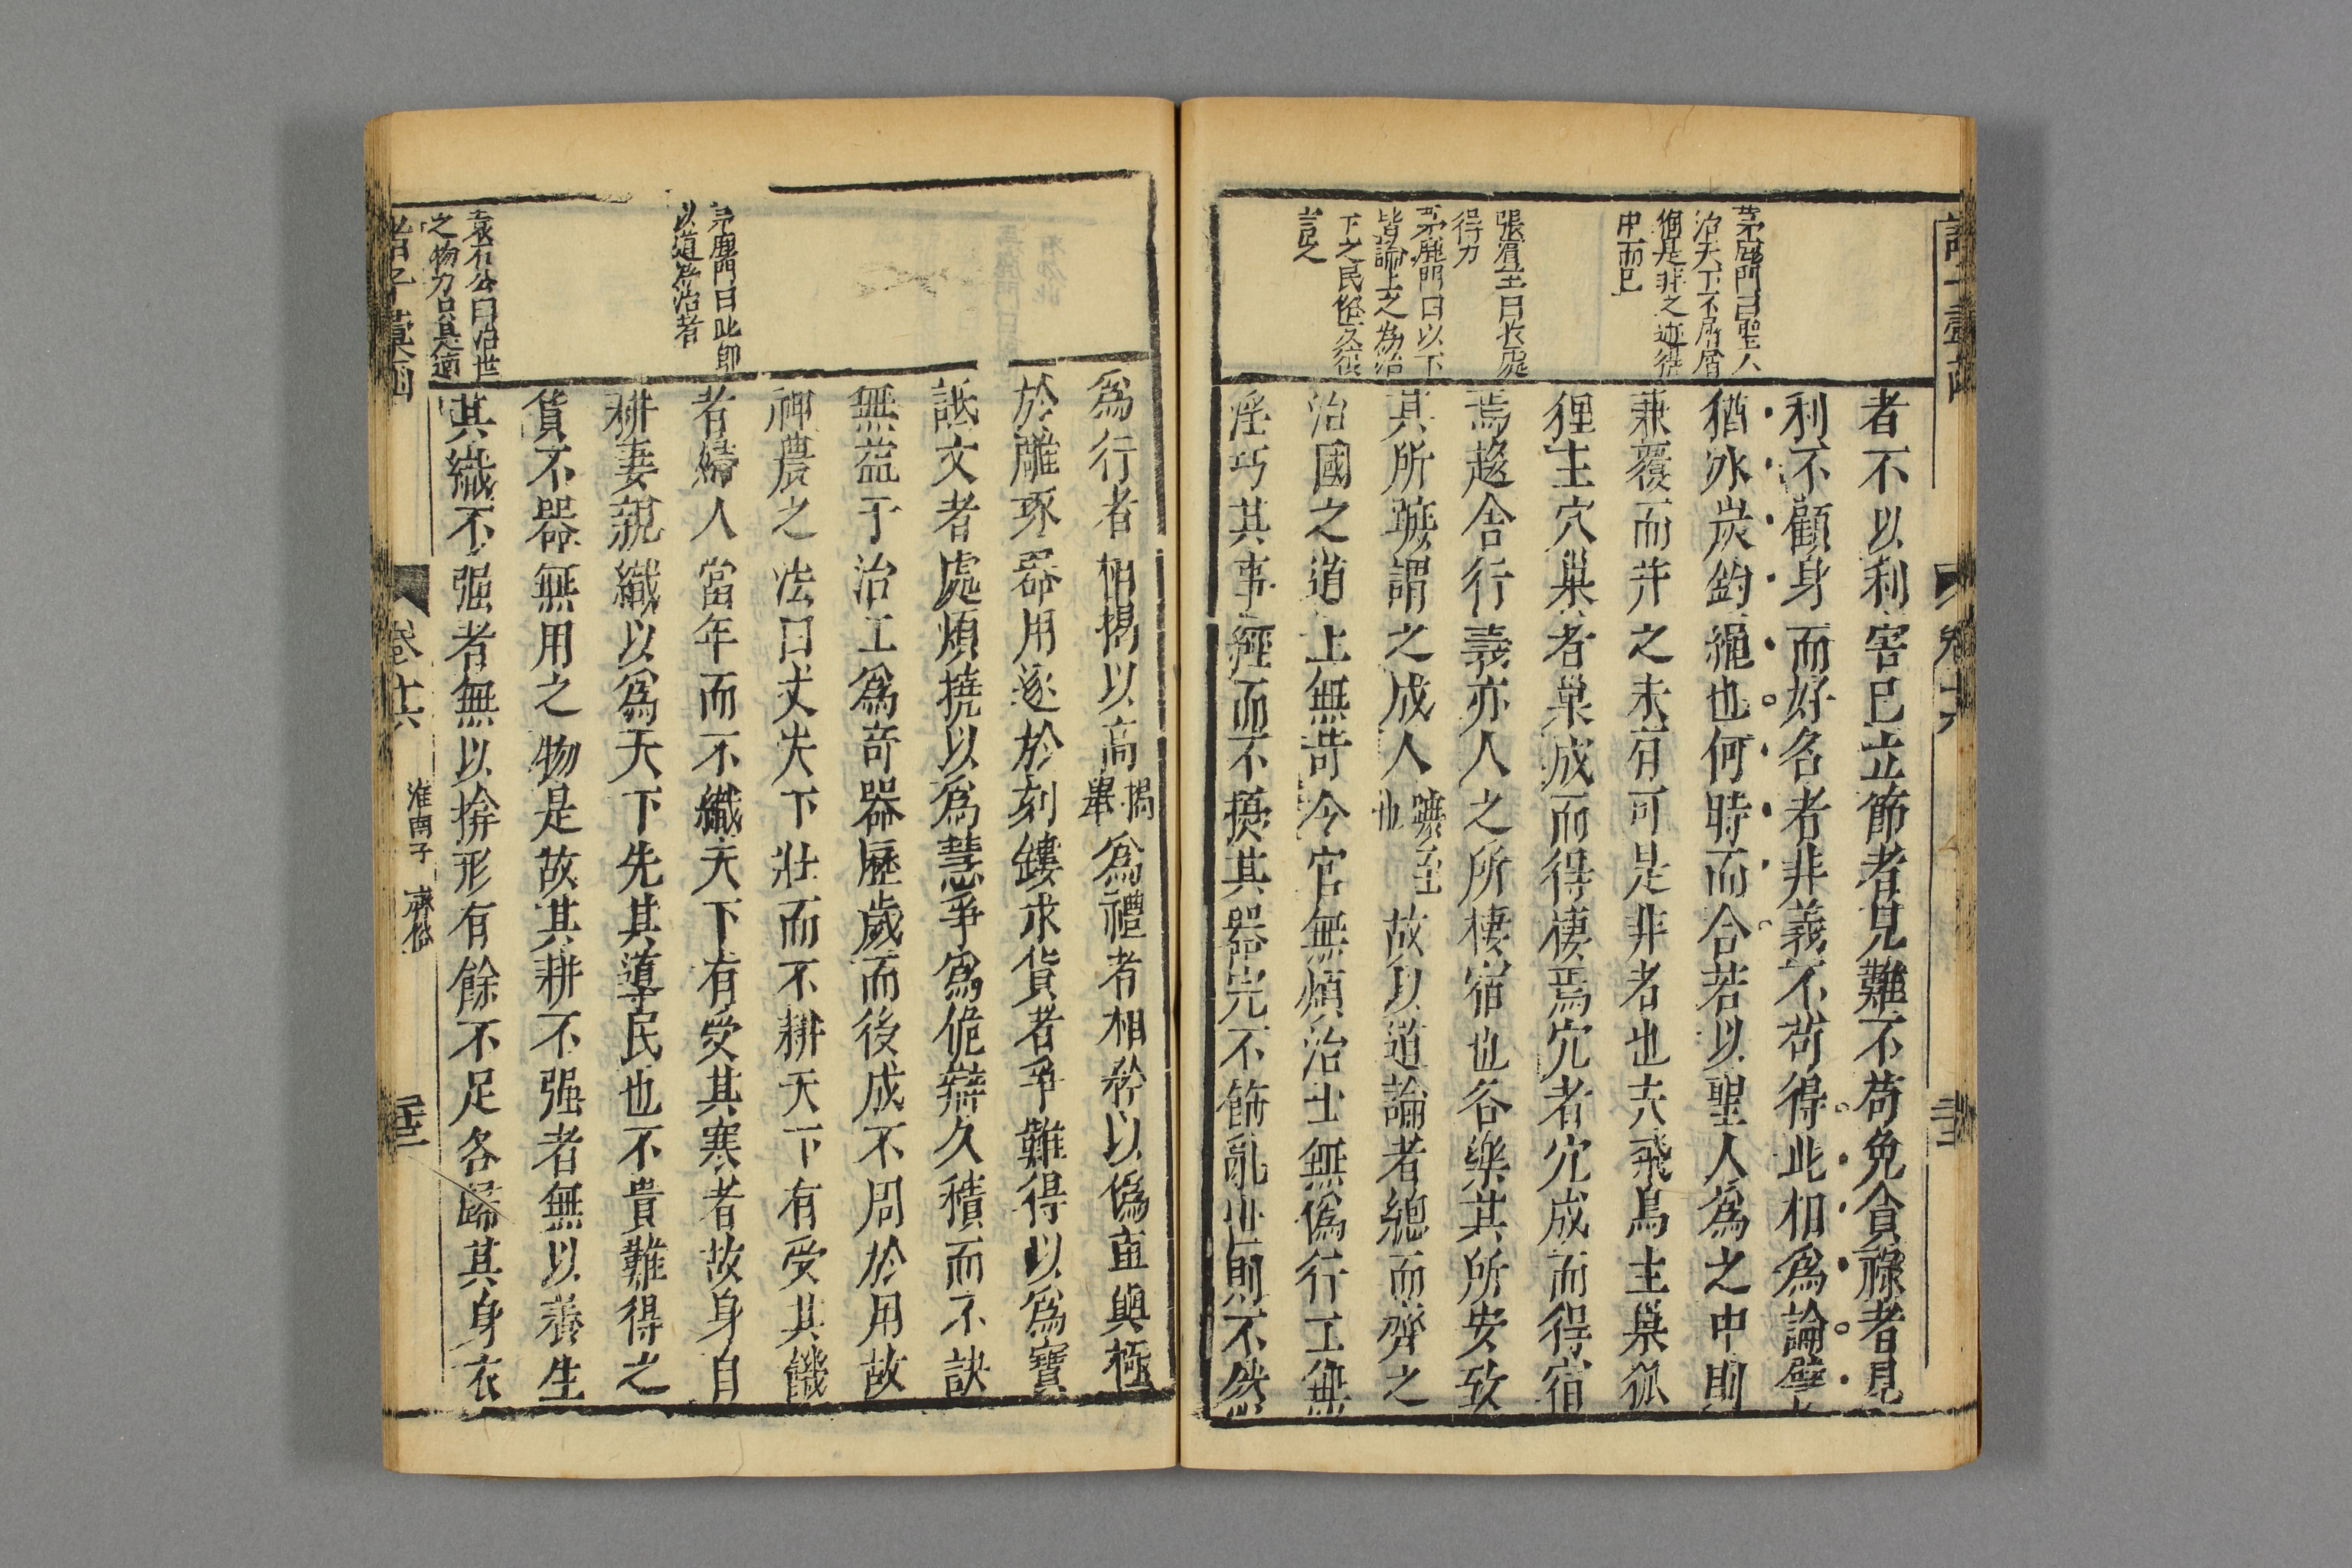 茅鹿門曰聖人
治天下不屑屑
個是非之迹從
中而已
張賓王曰收處
得力
茅鹿門曰以下
皆論上之為治
下之民俗交從
言之
者不以利害已立節者見難不苟免貪祿者見
利不顧身而好名者非義不苟得此相爲論譬
猶冰炭鈞繩也何時而合若以聖人爲之中則
兼覆而并之未有可是非者也夫飛鳥主巢狐
狸主穴巢者巢成而得棲焉穴者穴成而得宿
焉趨舍行義亦人之所棲宿也各樂其所安致
其所蹠謂之成人
蹠至
也
故以道論者總而齊之
治國之道上無苛令官無煩治士無僞行工無
淫巧其事經而不擾其器完不飾亂世則不然
卷十六
茅鹿門曰此即
以道為治者
袁石公曰治世
之物力只具適
爲行者相揭以高
揭
舉
爲禮者相矜以僞車輿極
於雕琢器用逐於刻鏤求貨者爭難得以爲寶
詆文者處煩撓以爲慧爭爲佹辯久積而不訣
無益于治工爲奇器歷歲而後成不周於用故
神農之法曰丈夫丁壯而不耕天下有受其饑
者婦人當年而不織天下有受其寒者故身自
耕妻親織以爲天下先其導民也不貴難得之
貨不器無用之物是故其耕不强者無以養生
其織不强者無以揜形有餘不足各歸其身衣
諸子彙函
卷十六
淮南子 齊俗